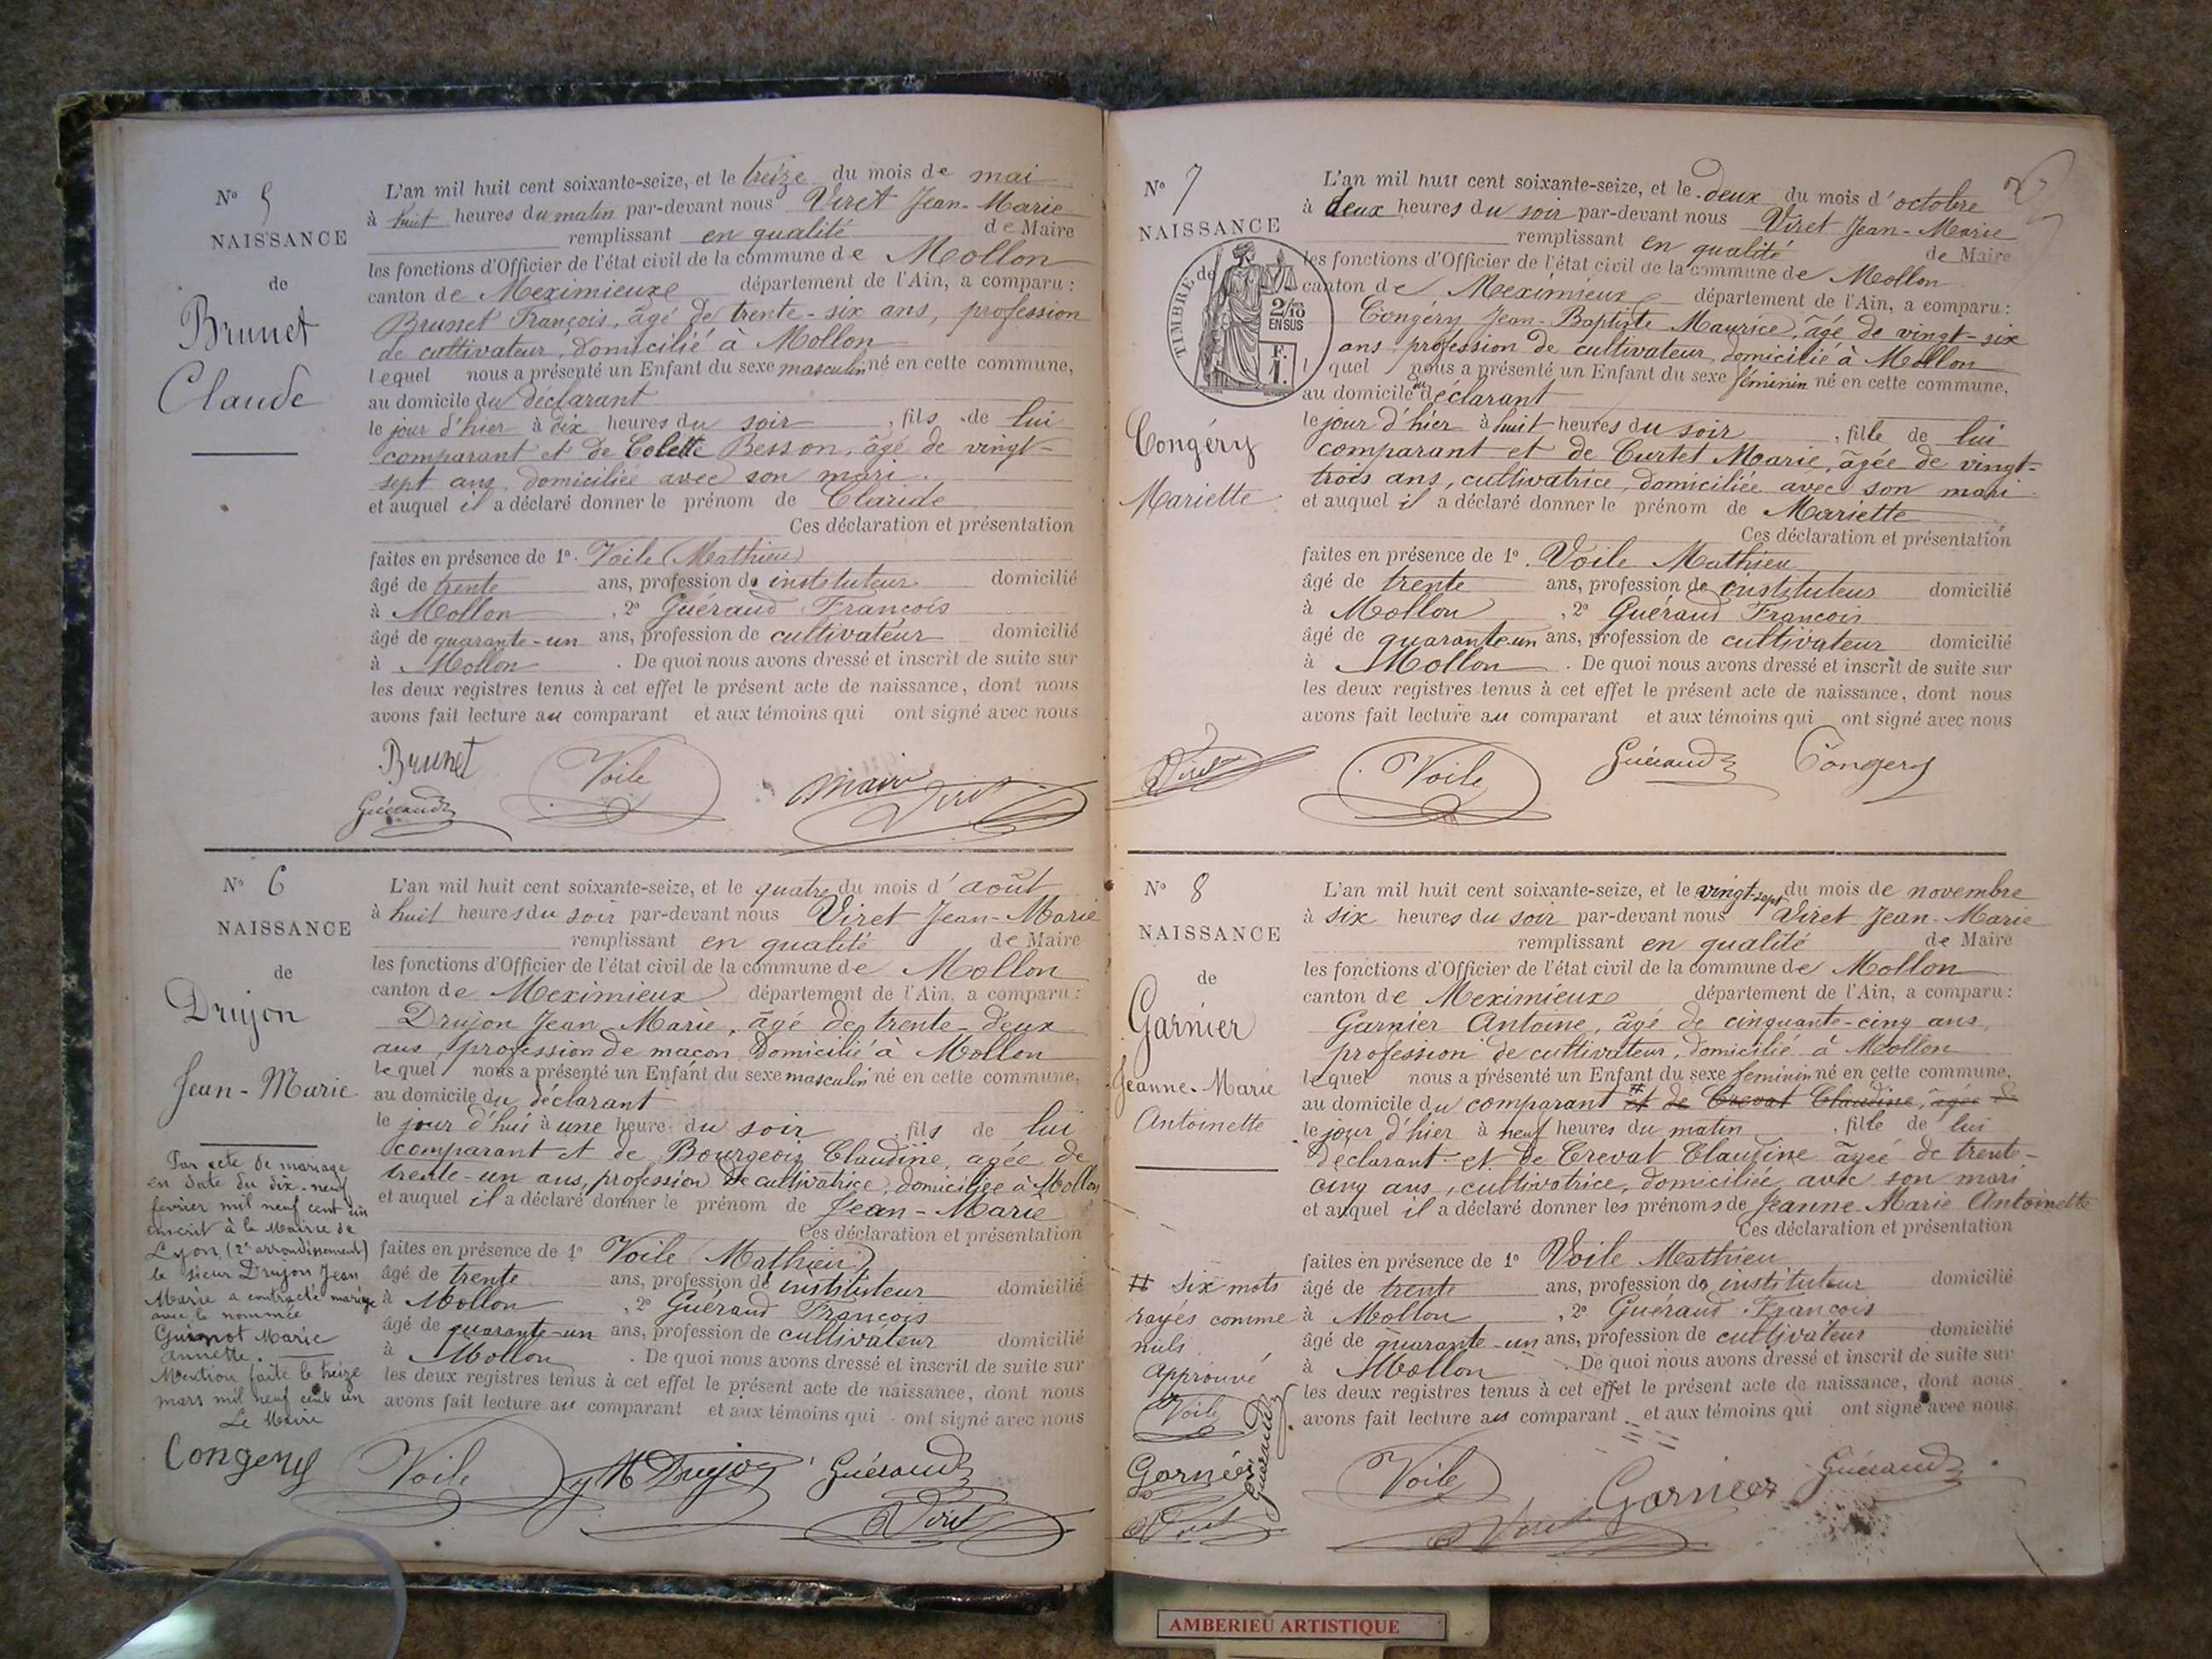 N° 5
NAISSANCE
de
Brunet
Claude
L'an mil huit cent soixante-seize, et le treize du mois de mai
à huit heures du matin par-devant nous Viret Jean-Marie
remplissant en qualité de Maire
les fonctions d'Officier de l'état civil de la commune de Mollon
canton de Meximieux département de l'Ain, a comparu :
Brunet François, âgé de trente-six ans, profession
de cultivateur, domicilié à Mollon
lequel nous a présenté un Enfant du sexe masculin né en cette commune,
au domicile du déclarant
le jour d'hier à dix heures du soir, fils de lui
comparant et de Colette Besson, âgé de vingt-
sept ans, domiciliée avec son mari.
et auquel il a déclaré donner le prénom de Claude
Ces déclaration et présentation
faites en présence de 1° Voile (Mathieu)
âgé de trente ans, profession de instituteur domicilié
à Mollon, 2° Guéraud François
âgé de quarante-un ans, profession de cultivateur domicilié
à Mollon. De quoi nous avons dressé et inscrit de suite sur
les deux registres tenus à cet effet le présent acte de naissance, dont nous
avons fait lecture au comparant et aux témoins qui ont signé avec nous
Brunet Voile maire Viret
Guéraud
N° 6
NAISSANCE
de
Drujon
Jean-Marie
L'an mil huit cent soixante-seize, et le quatre du mois d'août
à huit heures du soir par-devant nous Viret Jean-Marie
remplissant en qualité de Maire
les fonctions d'Officier de l'état civil de la commune de Mollon
canton de Meximieux département de l'Ain, a comparu :
Drujon Jean Marie, âgé de trente-deux
ans, profession de maçon domicilié à Mollon
lequel nous a présenté un Enfant du sexe masculin né en cette commune,
au domicile du déclarant
le jour d'hui à une heure du soir, fils de lui
comparant et de Bourgeois Claudine, agée de
trente-un ans, profession de cultivatrice, domiciliée à Mollon
et auquel il a déclaré donner le prénom de Jean-Marie
Ces déclaration et présentation
faites en présence de 1° Voile (Mathieu)
âgé de trente ans, profession de instituteur domicilié
à Mollon, 2° Guéraud François
âgé de quarante-un ans, profession de cultivateur domicilié
à Mollon. De quoi nous avons dressé et inscrit de suite sur
les deux registres tenus à cet effet le présent acte de naissance, dont nous
avons fait lecture au comparant et aux témoins qui ont signé avec nous
Par acte de mariage
en date du dix-neuf
février mil neuf cent un
inscrit à la Mairie de
Lyon (2e arrondissement)
le sieur Drujon Jean
Marie a contracté mariage
avec la nommée
Guignot Marie
Annette.
Mention faite le treize
mars mil neuf cent un
Le Maire
Congery Voile JM Drujon Guéraud
Viret
N° 7
NAISSANCE
TIMBRE de
2/10
EN SUS
F.
1.
Congéry
Mariette
L'an mil huit cent soixante-seize, et le deux du mois d'octobre
à deux heures du soir par-devant nous Viret Jean-Marie
remplissant en qualité de Maire
les fonctions d'Officier de l'état civil de la commune de Mollon
canton de Meximieux département de l'Ain, a comparu :
Congéry Jean-Baptiste Maurice, âgé de vingt-six
ans, profession de cultivateur, domicilié à Mollon
lequel nous a présenté un Enfant du sexe féminin né en cette commune,
au domicile du déclarant
le jour d'hier à huit heures du soir, fille de lui
comparant et de Curtet Marie, âgée de vingt-
trois ans, cultivatrice, domiciliée avec son mari
et auquel il a déclaré donner le prénom de Mariette
Ces déclaration et présentation
faites en présence de 1° Voile Mathieu
âgé de trente ans, profession de instituteur domicilié
à Mollon, 2° Guéraud François
âgé de quarante-un ans, profession de cultivateur domicilié
à Mollon. De quoi nous avons dressé et inscrit de suite sur
les deux registres tenus à cet effet le présent acte de naissance, dont nous
avons fait lecture au comparant et aux témoins qui ont signé avec nous
Viret Voile Guéraud Congery
N° 8
NAISSANCE
de
Garnier
Jeanne-Marie
Antoinette
L'an mil huit cent soixante-seize, et le vingt-sept du mois de novembre
à six heures du soir par-devant nous Viret Jean-Marie
remplissant en qualité de Maire
les fonctions d'Officier de l'état civil de la commune de Mollon
canton de Meximieux département de l'Ain, a comparu :
Garnier Antoine, âgé de cinquante-cinq ans,
profession de cultivateur, domicilié à Mollon
lequel nous a présenté un Enfant du sexe féminin né en cette commune,
au domicile du comparant # et de Crevat Claudine, agée de
le jour d'hier à neuf heures du matin, fille de lui
déclarant et de Crevat Claudine âgée de trente-
cinq ans, cultivatrice, domiciliée avec son mari
et auquel il a déclaré donner les prénoms de Jeanne-Marie Antoinette
Ces déclaration et présentation
faites en présence de 1° Voile Mathieu
âgé de trente ans, profession de instituteur domicilié
à Mollon, 2° Guéraud François
âgé de quarante-un ans, profession de cultivateur domicilié
à Mollon. De quoi nous avons dressé et inscrit de suite sur
les deux registres tenus à cet effet le présent acte de naissance, dont nous
avons fait lecture au comparant et aux témoins qui ont signé avec nous
# six mots
rayés comme
nuls
Approuvé
Voile
Guéraud
Garnier
Viret
Voile Garnier Guéraud
Viret
AMBERIEU ARTISTIQUE